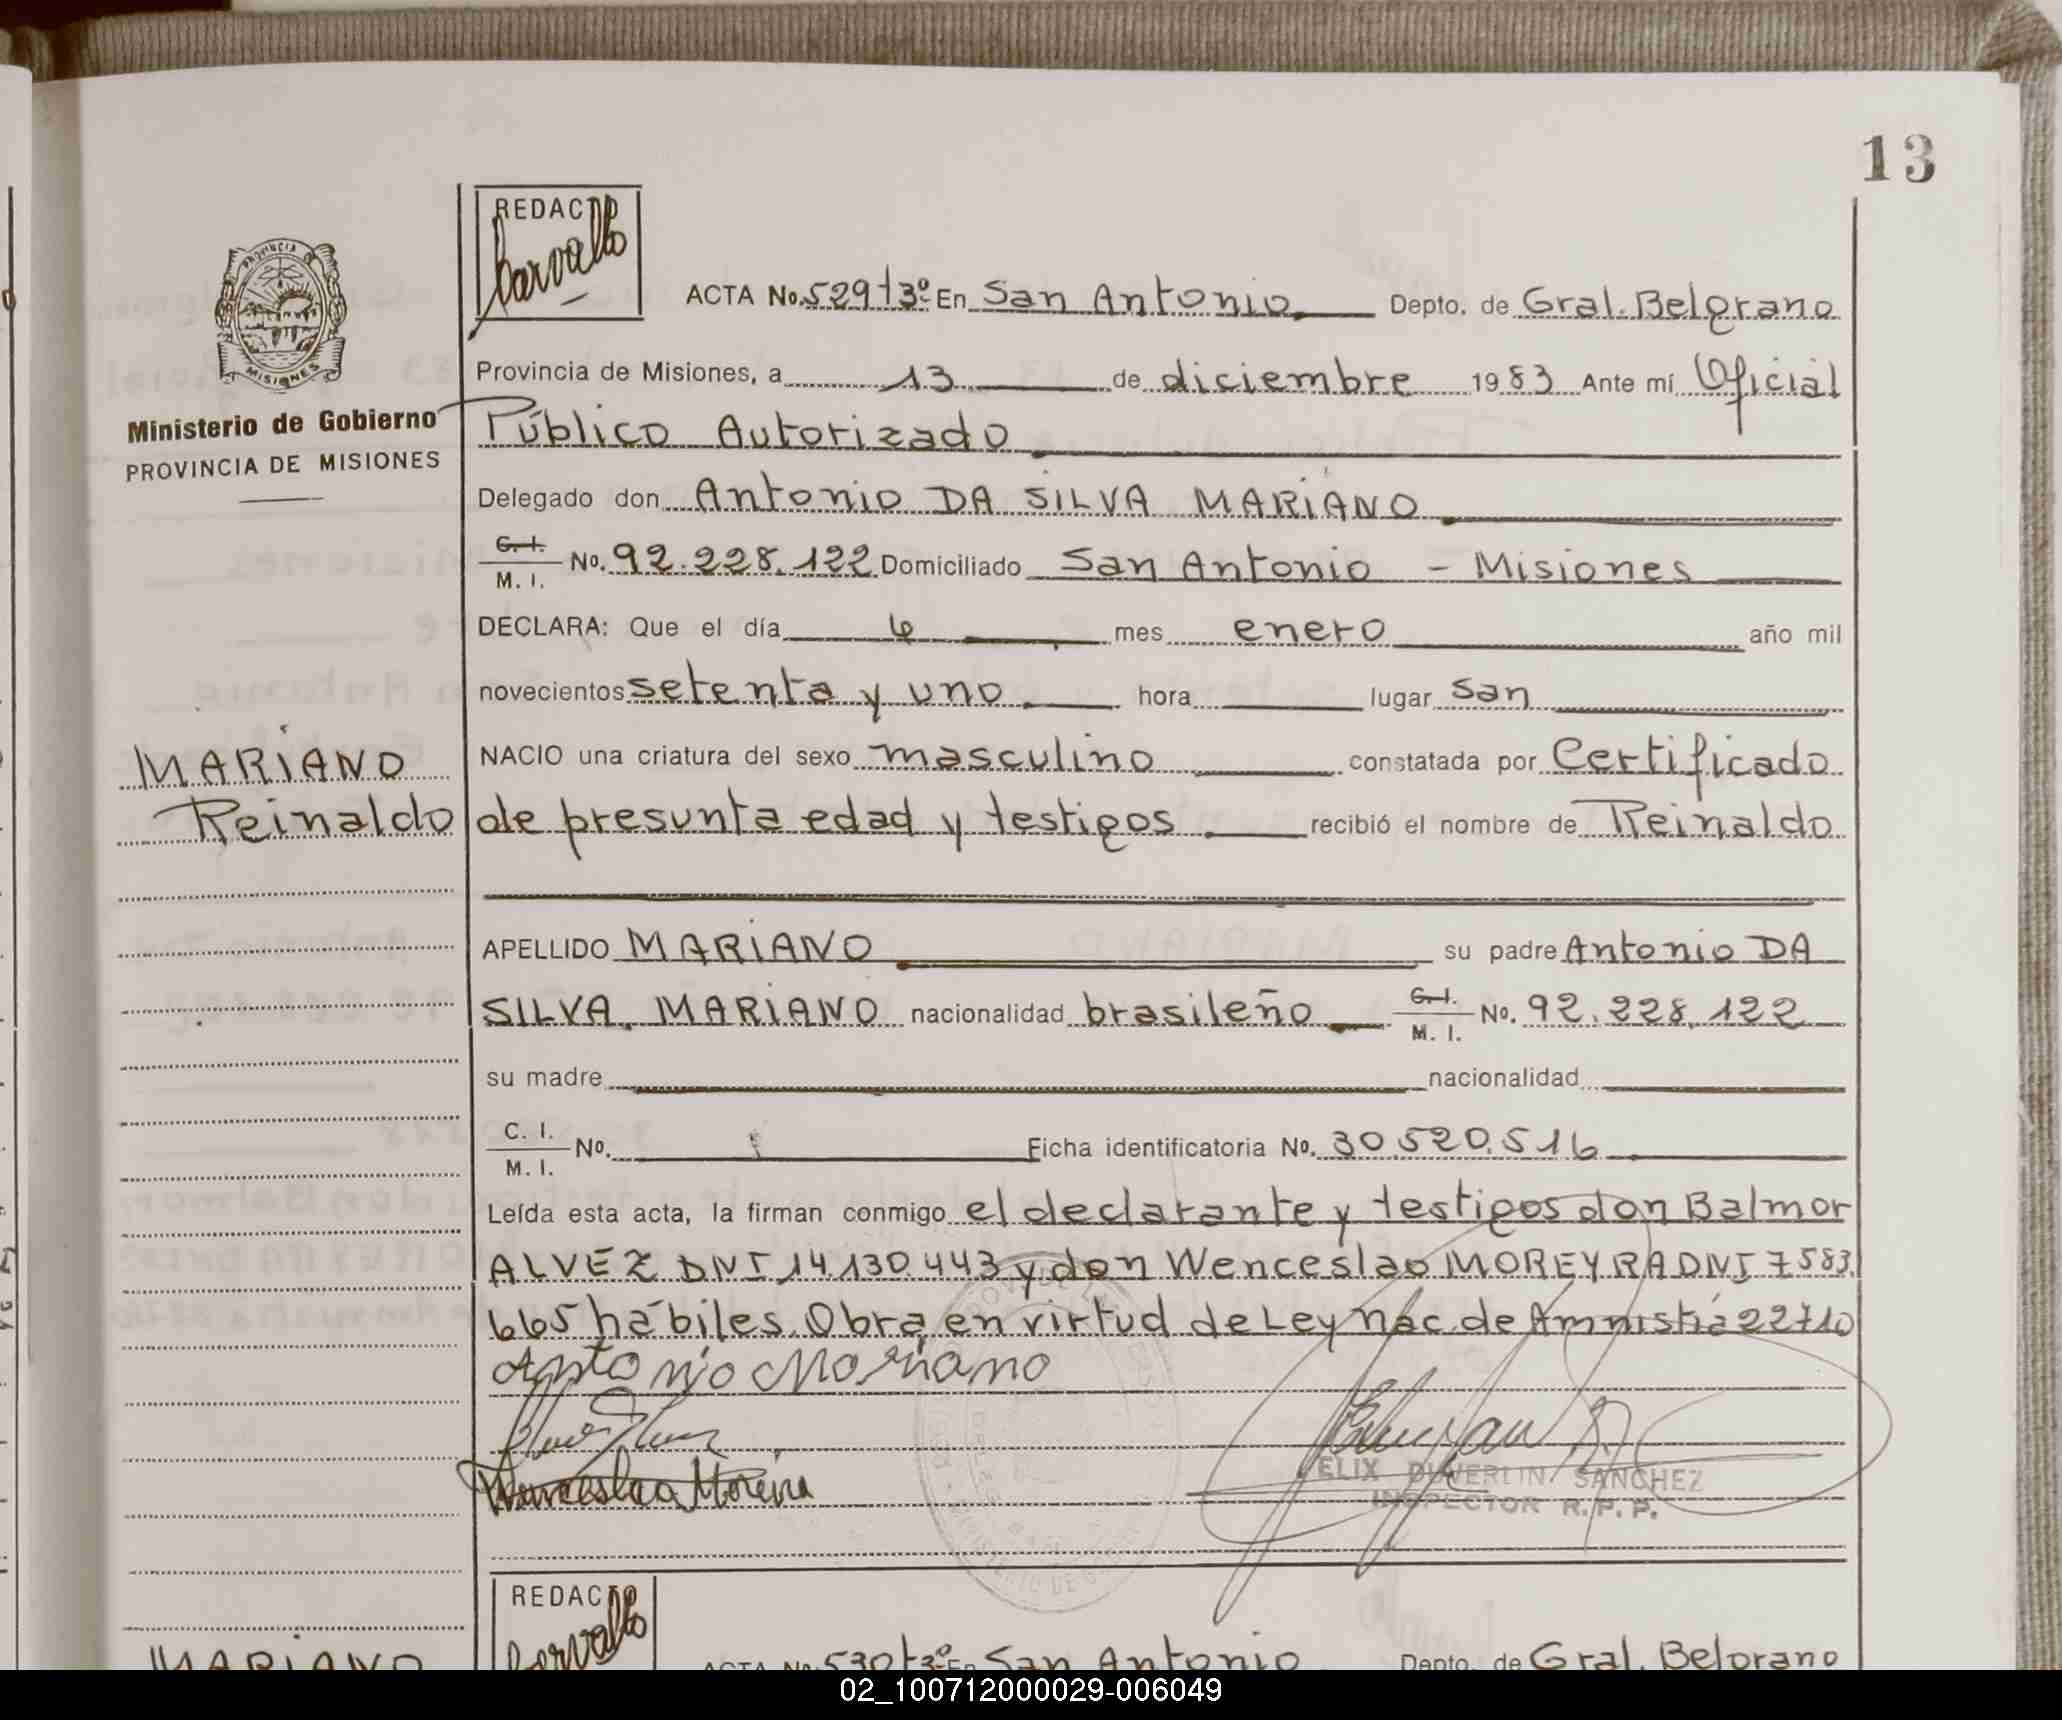 13
REDACTO
Carvallo
PROVINCIA
MISIONES
Ministerio de Gobierno
PROVINCIA DE MISIONES
ACTA No. 529 t 3º En San Antonio Depto. de Gral. Belgrano
Provincia de Misiones, a 13 de diciembre 1983 Ante mí Oficial
Público Autorizado
Delegado don Antonio DA SILVA MARIANO
C. I. / M. I. No. 92.228.122 Domiciliado San Antonio - Misiones
DECLARA: Que el día 6 mes enero año mil
novecientos setenta y uno hora lugar San
NACIO una criatura del sexo masculino constatada por Certificado
MARIANO
Reinaldo
de presunta edad y testigos recibió el nombre de Reinaldo
APELLIDO MARIANO su padre Antonio DA
SILVA MARIANO nacionalidad brasileño C. I. / M. I. No. 92.228.122
su madre nacionalidad
C. I. / M. I. No. Ficha identificatoria No. 30.520.516
Leída esta acta, la firman conmigo el declarante y testigos don Balmor
ALVEZ DNI 14.130.443 y don Wenceslao MOREYRA DNI 7.583.
665 hábiles. Obra en virtud de Ley Nac. de Amnistía 22710
Antonio Mariano
Wenceslao Moreira
FELIX DUVERLIN SANCHEZ
INSPECTOR R. P. P.
REDACTO
Carvallo
MARIANO
ACTA No. 530 t 3º En San Antonio Depto. de Gral. Belgrano
02_100712000029-006049